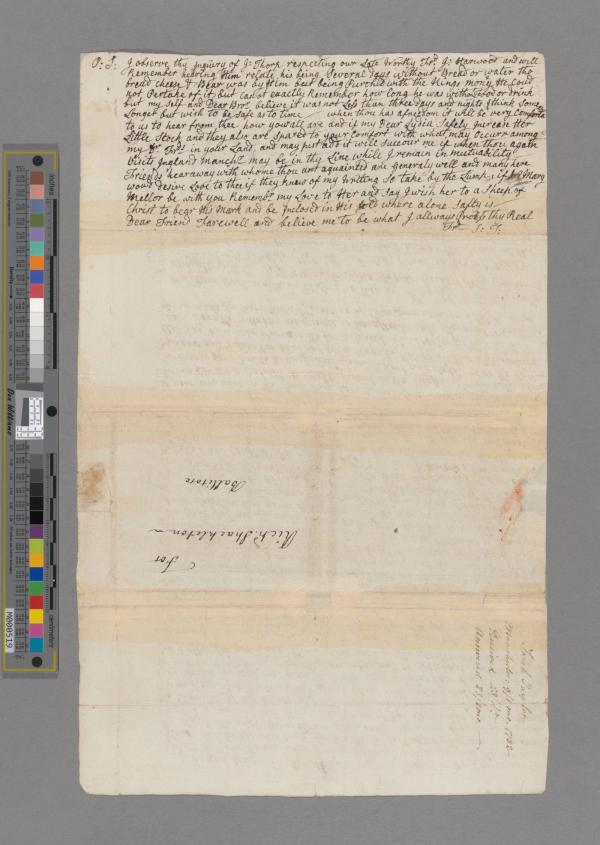 P: S: I observe thy inquiry of J: Thorp respecting our Late Worthy Frd. J: Harwood and will
Remember hearing Him relate his being Several days without Bread or water tho
bread cheese & Bear was by Him but being Purchsd with the Kings mony He Could
not Pertake of it, but canot exactly Remember how long he was without food or drink
but my Self and Dear Bror. believe it was not Less than three days and nights I think Some
Longer but wish to be Safe as to time when thou has afreedom it will be very Comfortable
to us to hear from thee how you all are and if my Dear Lydia Safely increase Her
Little Stock and they also are Spared to your Comfort with what may occurr among
my Dr. Frds. in your Land, and may just add it will Succour me if when thou again
Visits England Manchr. may be in thy Line while I remain in mutuability
Friends hear away with whome thou art aquainted are generaly well and many here
woud desire Love to thee if they knew of my Writing So take by the Lump; if Mary
Mellor be with you Remembr. my Love to Her and Say I wish her to a Sheep of
Christ to bear His Mark and be Inclosed in His fold where alone Safty is
Dear Friend Farewell and believe me to be what I allways Profess thy Real
Frd. S: T:
For
Richd. Shackleton
Ballitore
Sarah Taylor
Manchester 1782
Received
Answered
inches
centimetres
Don Williams
M000519